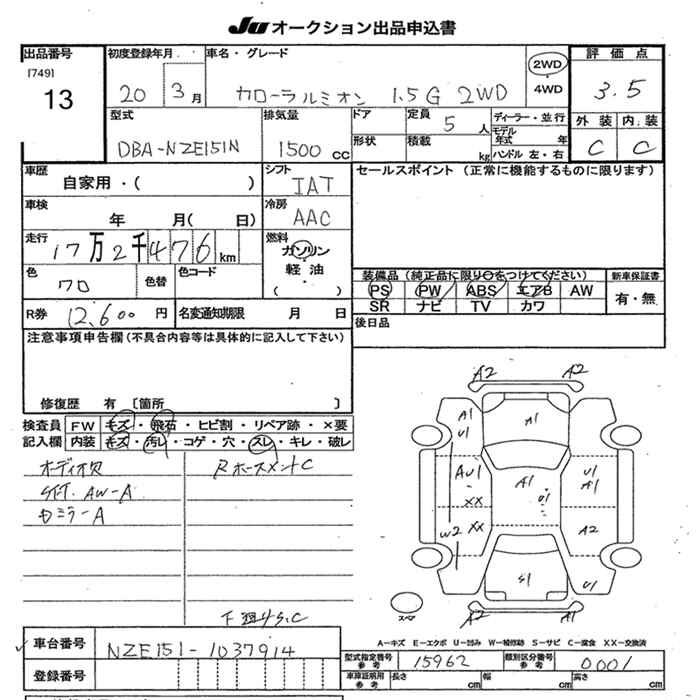 JU オークション出品申込書
出品番号 初度登録年月 車名・グレード 評価点
[749] 13 20 3月 カローラルミオン 1.5G 2WD 2WD 4WD 3.5
型式 排気量 ドア 定員 5人 ディーラー・並行 外装 内装
DBA-NZE151N 1500cc 形状 積載 kg モデル年式 年 ハンドル 左・右 C C
車歴 シフト セールスポイント (正常に機能するものに限ります)
自家用・( ) IAT
車検 冷房
年 月( 日) AAC
走行 燃料
17万2千476km ガソリン
軽油
( )
色 色替 色コード
クロ
装備品 (純正品に限り○をつけてください) 新車保証書
PS PW ABS エアB AW 有・無
SR ナビ TV カワ
R券 12,600円 名変通知期限 月 日
後日品
注意事項申告欄 (不具合内容等は具体的に記入して下さい)
修復歴 有 [箇所 ]
検査員 FW キズ・飛石・ヒビ割・リペア跡・×要
記入欄 内装 キズ・汚レ・コゲ・穴・スレ・キレ・破レ
オーディオ欠 Rホースメント C
AW-A
ミラーA
下廻り S.C
A2 A2
A1 A1
U1
AU1 A1 U1 U1
A1
XX
XX A2
W2
S1 U1
A2 A1
スペア
A-キズ E-エクボ U-凹み W-補修跡 S-サビ C-腐食 XX-交換済
車台番号 NZE151-1037914
型式指定番号 参考 15962 類別区分番号 参考 0001
登録番号
車庫証明用 参考 長さ cm 幅 cm 高さ cm